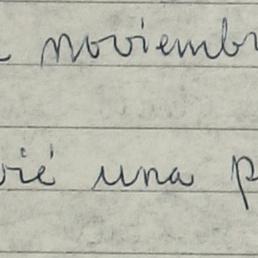 noviembr
vié una p